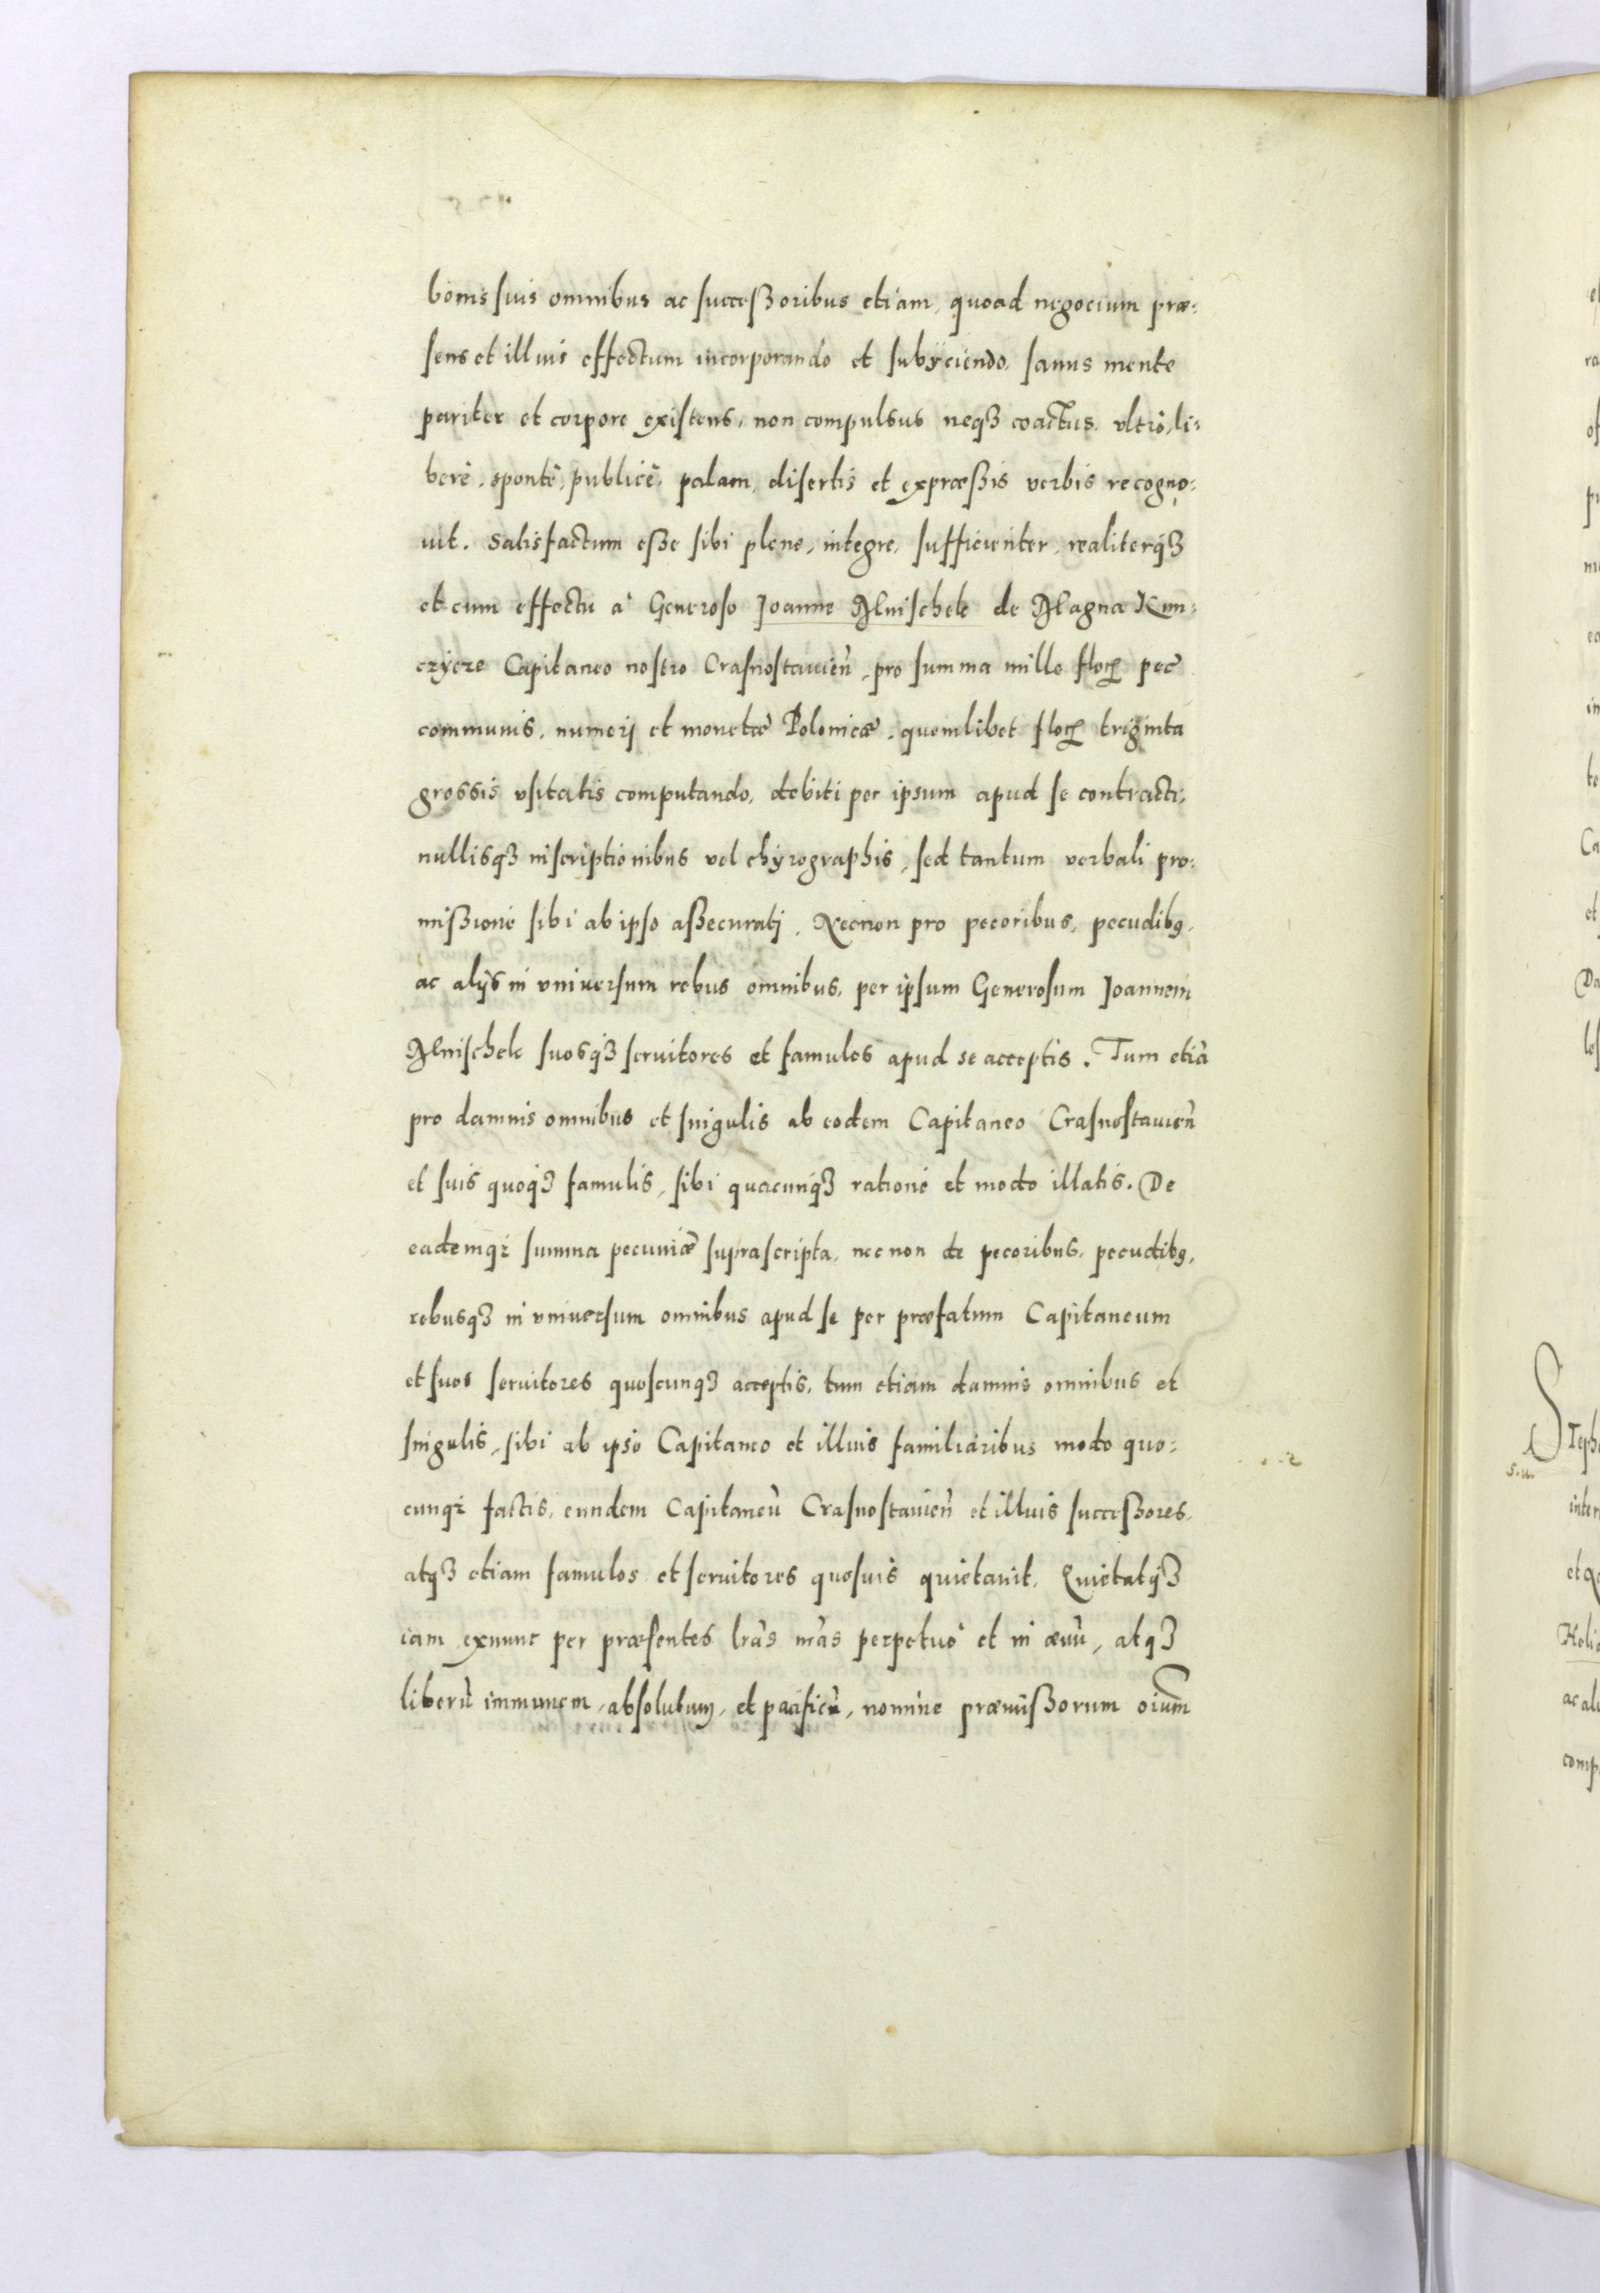 bonis suis omnibus ac successoribus etiam, quoad negocium præ:
sens et illius effectum incorporando et subÿciendo, sanus mente
pariter et corpore existens, non compulsus neq3 coactus, vltrò, li:
berè, spontè, publicè, palam, disertis et expræssis verbis recogno:
uit. Satisfactum esse sibi plene, integre, sufficienter, realiterq3
et cum effectu à Generoso Joanne Mnischek de Magna Kun:
czÿcze Capitaneo nostro Crasnostauień, pro summa mille floꝝ pec̃
communis, numerj et monetæ Polonicæ, quemlibet floꝝ triginta
grossis vsitatis computando, debiti per ipsum apud se contracti,
nullisq3 inscriptionibus vel chÿrographis, sed tantum verbali pro:
missione sibi ab ipso assecuratj, Necnon pro pecoribus, pecudibꝰ,
ac alÿs in vniuersum rebus omnibus, per ipsum Generosum Joannem
Mnischek suosq3 seruitores et famulos apud se acceptis. Tum etiã
pro damnis omnibus et singulis ab eodem Capitaneo Crasnostauień
et suis quoq3 famulis, sibi quacunq3 ratione et modo illatis. De
eademq3 summa pecuniæ suprascripta, necnon de pecoribus, pecudibꝰ,
rebusq3 in vniuersum omnibus apud se per præfatum Capitaneum
et suos seruitores quoscunq3 acceptis, tum etiam damnis omnibus et
singulis, sibi ab ipso Capitaneo et illius familiaribus modo quo:
cunq3 factis, eundem Capitaneũ Crasnostauień et illius successores,
atq3 etiam famulos et seruitores quosuis quietauit, Quietatq3
iam exnunc per præsentes lr̃as nr̃as perpetuò et in æuũ, atq3
liberũ immunem, absolutum, et pacificũ, nomine præmissorum oium̃